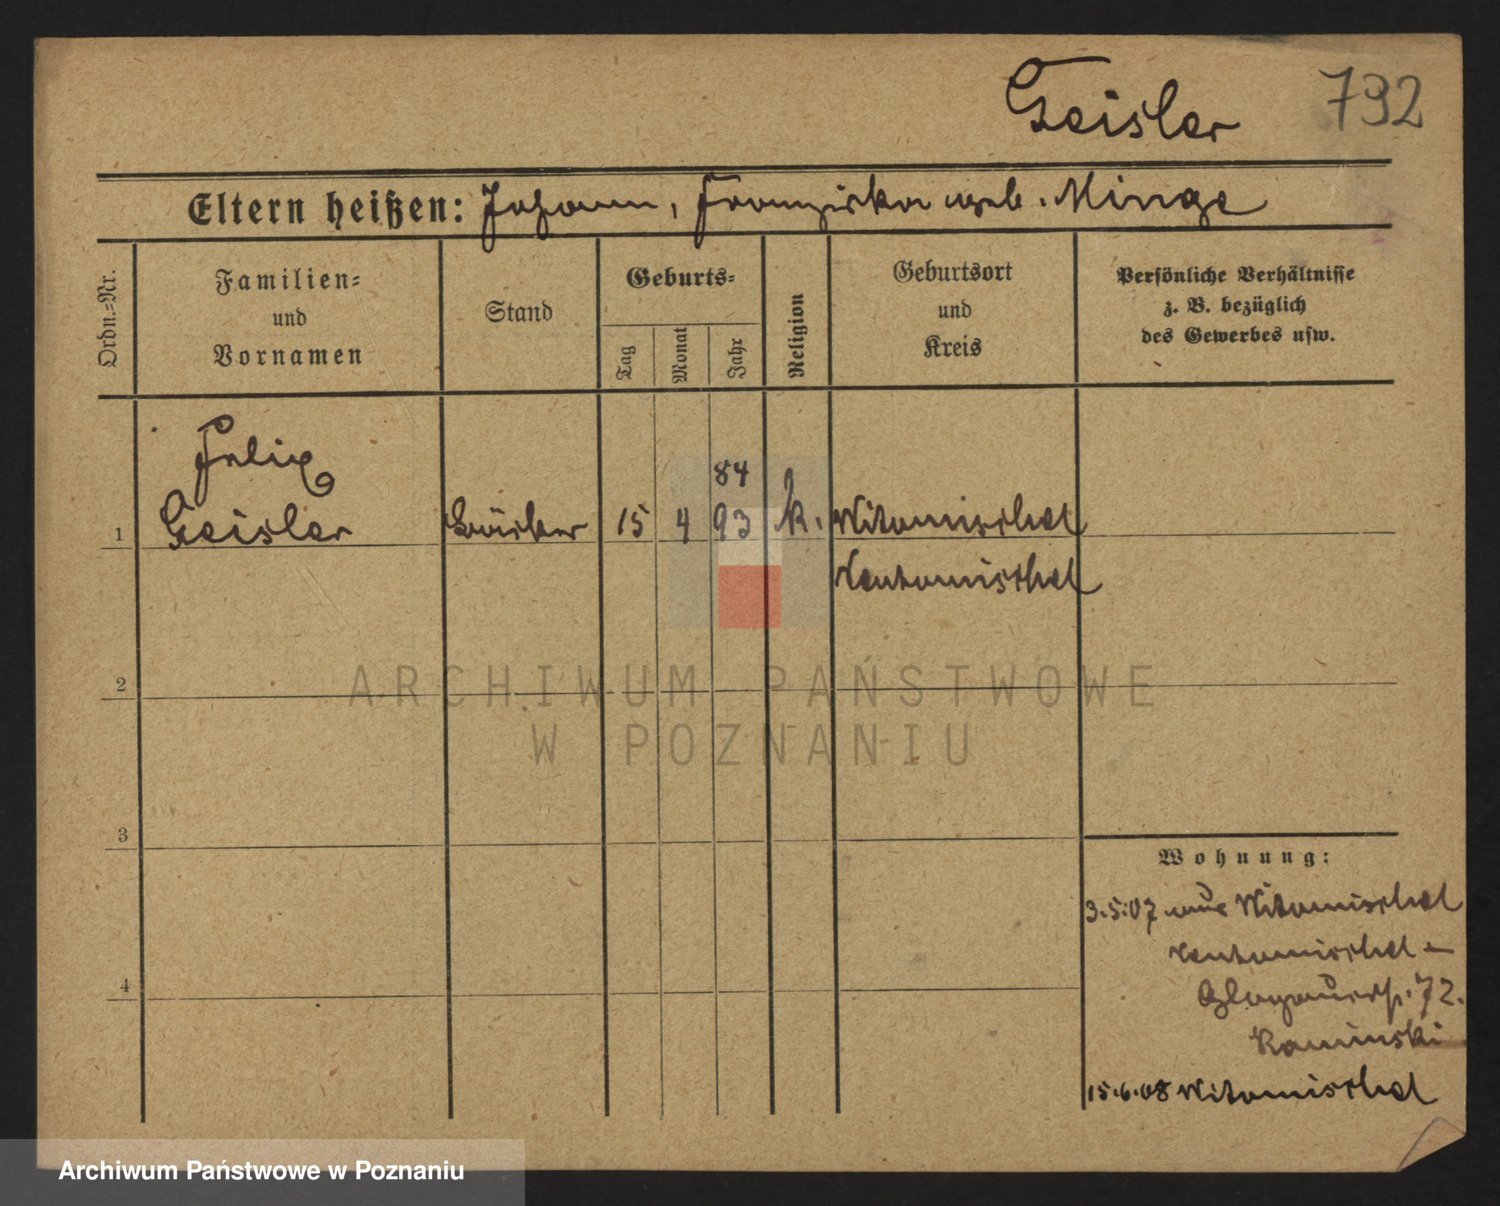 Geisler 792
Eltern heißen: Johann, Franziska geb. Minge
Ordn.=Nr.
Familien=
und
Vornamen
Stand
Geburts=
Tag
Monat
Jahr
Religion
Geburtsort
und
Kreis
Persönliche Verhältnisse
z. B. bezüglich
des Gewerbes usw.
Felix
84
1 Geisler Bäcker 15 4 93 k. Witomischel
Neutomischel
2
3
4
Wohnung:
3.5.07 aus Witomischel
Neutomischel -
Glogauerstr. 72.
Kaminski
15.6.08 Witomischel
ARCHIWUM PAŃSTWOWE
W POZNANIU
Archiwum Państwowe w Poznaniu